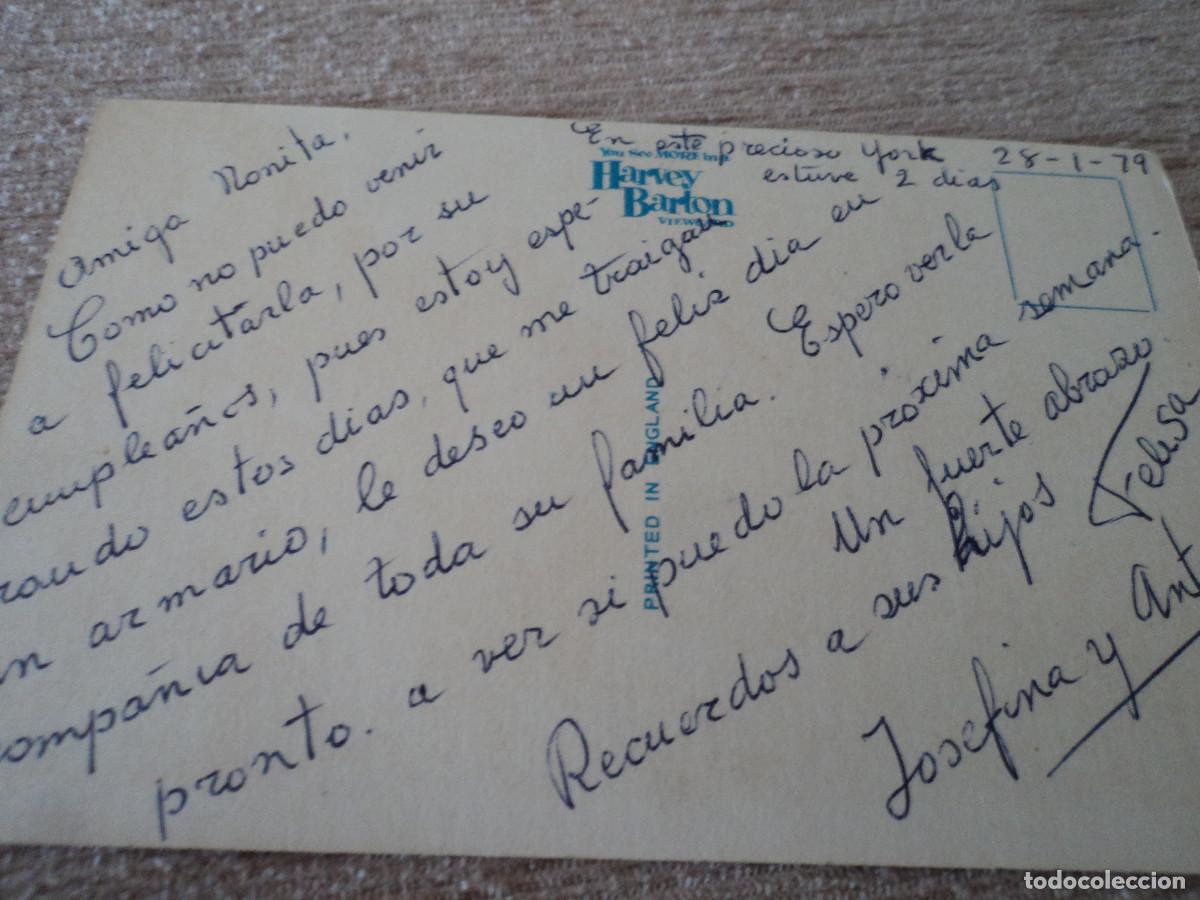 En este precioso York
estuve 2 dias
28-1-79
You See MORE in a
Harvey
Barton
PRINTED IN ENGLAND
Amiga Monita.
Como no puedo venir
a felicitarla, por su
cumpleaños, pues estoy espe-
rando estos dias, que me traigan
un armario, le deseo un feliz dia en
compañia de toda su familia. Espero verla
pronto. a ver si puedo la próxima semana.
Un fuerte abrazo.
Felisa
Recuerdos a sus hijos
Josefina y Ant
todocoleccion